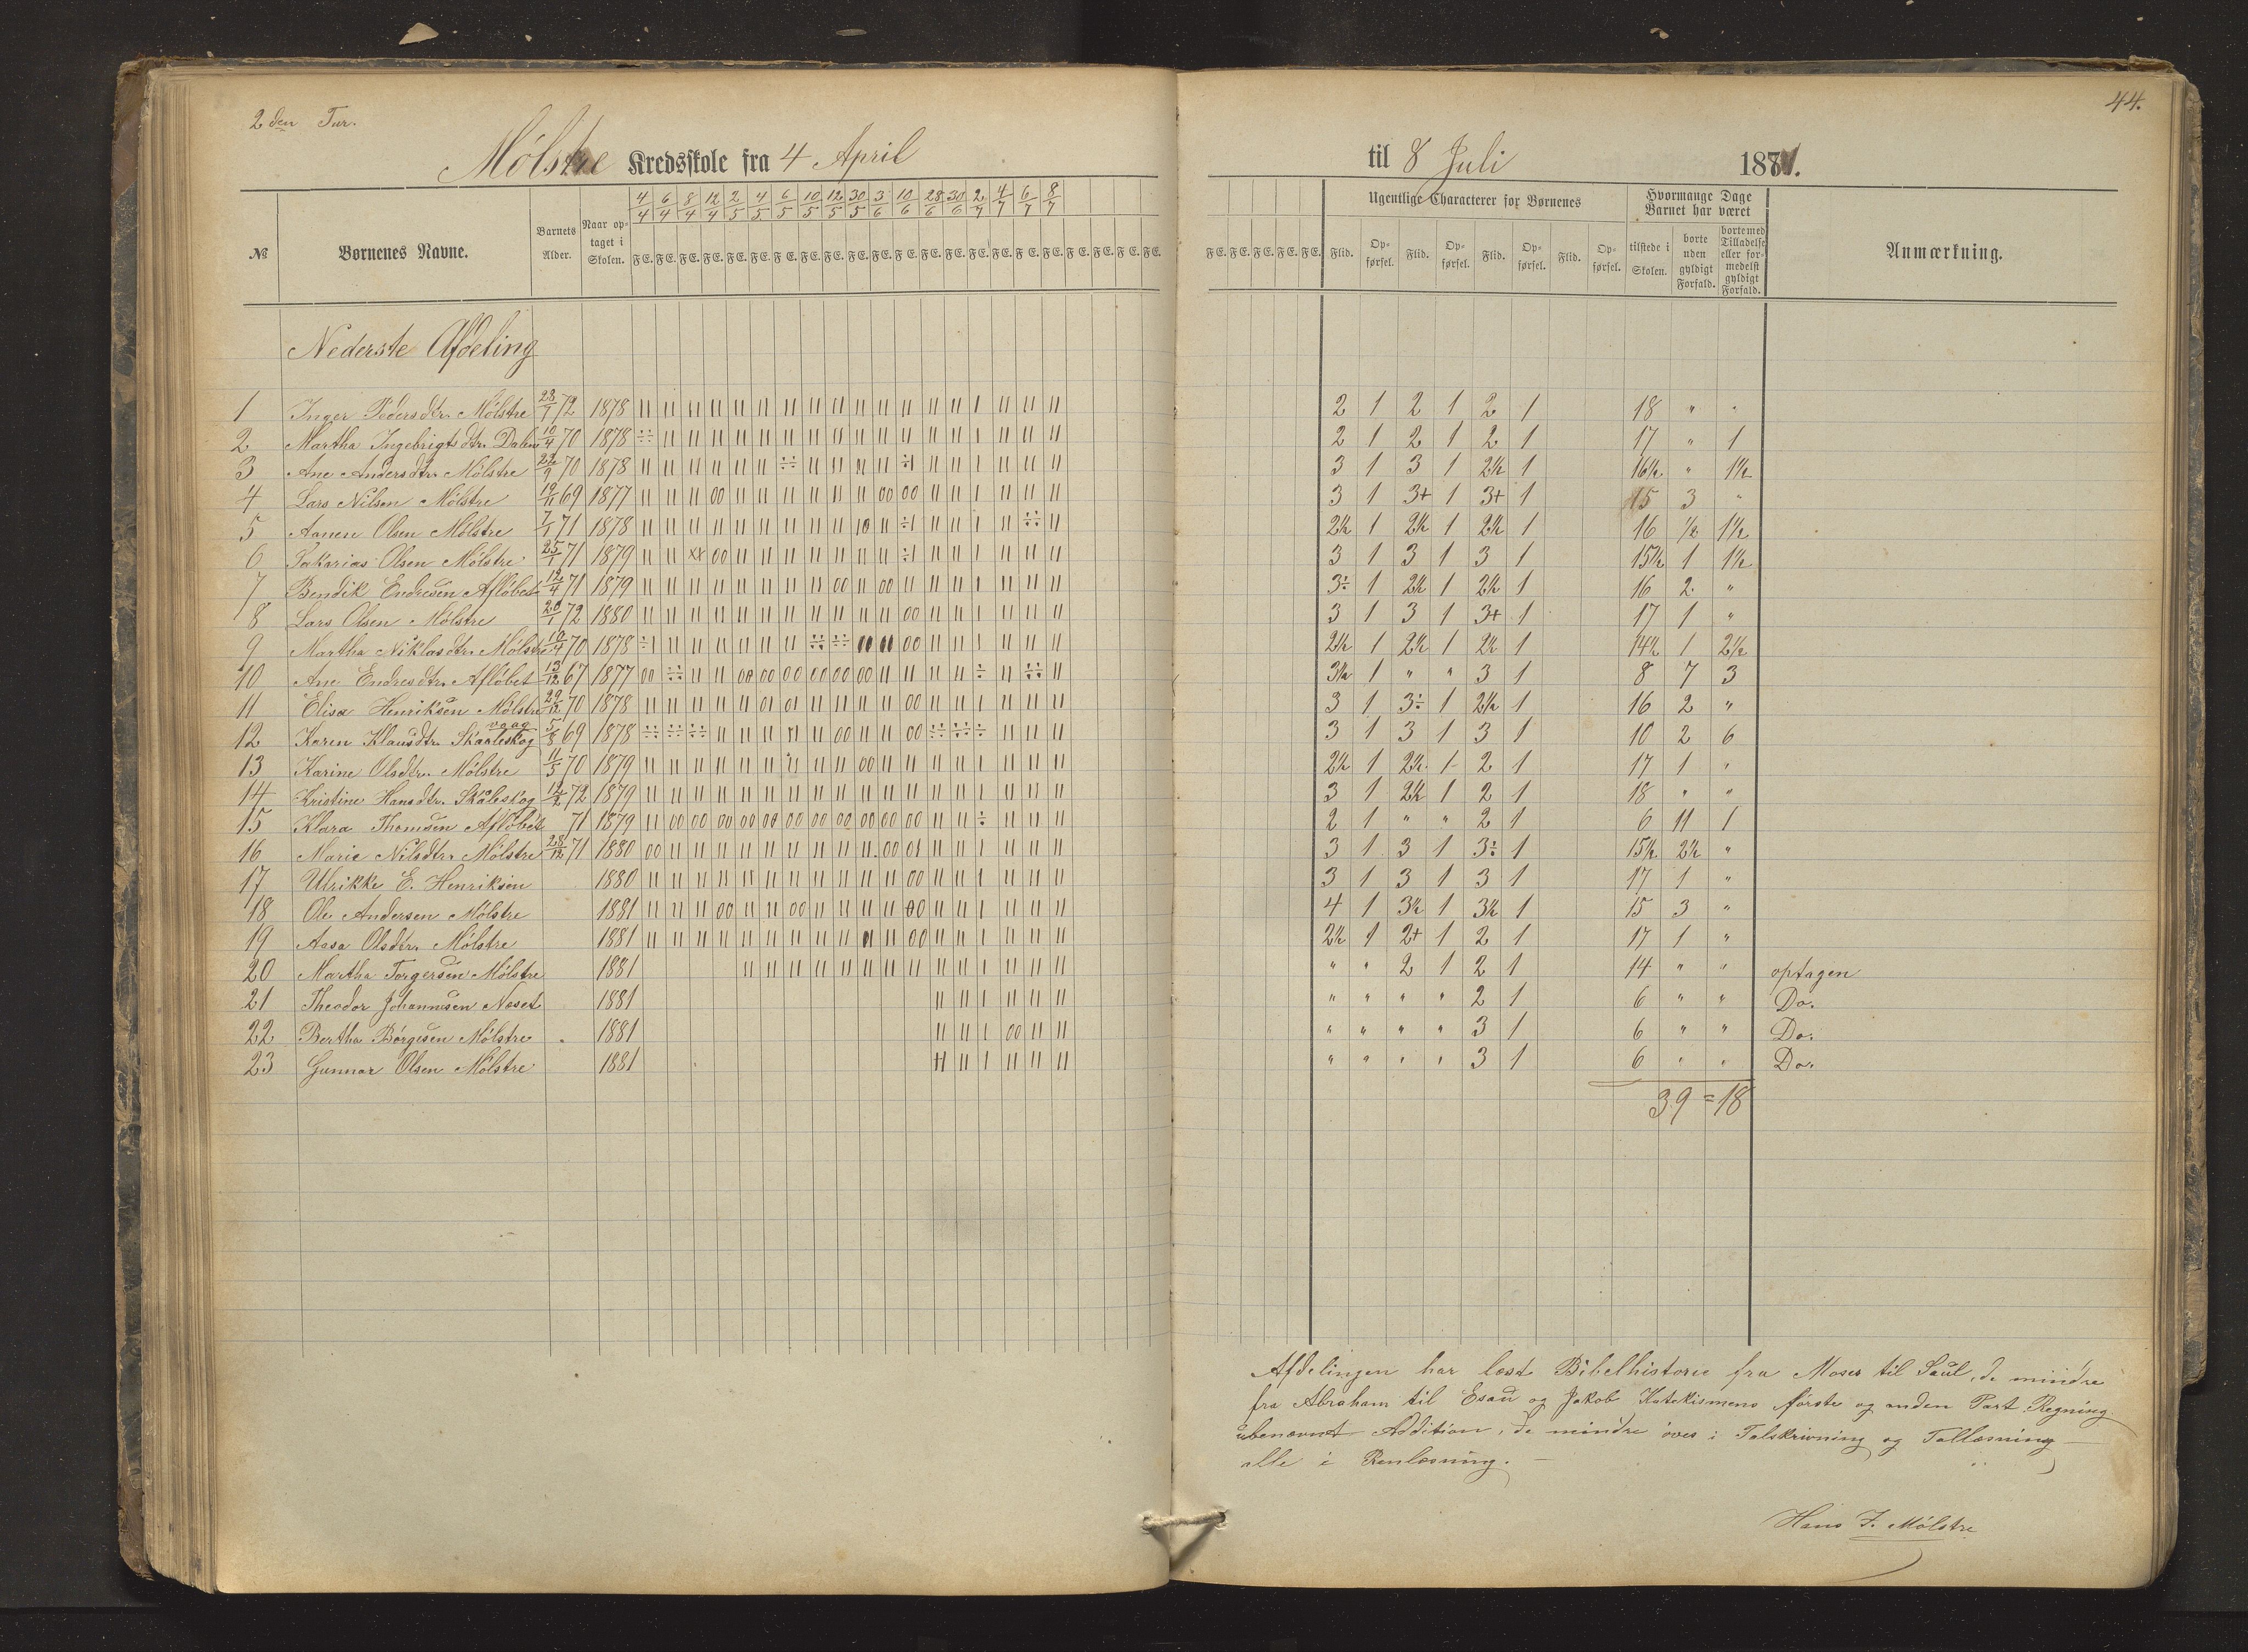 44.
2 den Tur.
Mólstre Kredsskole fra 4 April til 8 Juli 1881.
№ Børnenes Navne. Barnets Alder. Naar optaget i Skolen. 4/4 6/4 8/4 12/4 2/5 4/5 6/5 10/5 12/5 30/5 3/6 10/6 28/6 30/6 2/7 4/7 6/7 8/7
F E. F E. F E. F E. F E. F E. F E. F E. F E. F E. F E. F E. F E. F E. F E. F E. F E. F E. F E. F E. F E. F E.
F E. F E. F E. F E. F E. Ugentlige Characterer for Børnenes Hvormange Dage Barnet har været Anmærkning.
Flid. Opførsel. Flid. Opførsel. Flid. Opførsel. Flid. Opførsel. tilstede i Skolen. borte uden gyldigt Forfald. borte med Tilladelse eller formedelst gyldigt Forfald.
Nederste Afdeling
1 Inger Pedersdtr. Mólstre 28/1 72 1878 2 1 2 1 2 1 18 " "
2 Martha Ingebrigtsdtr. Dalen 10/4 70 1878 2 1 2 1 2 1 17 " 1
3 Ane Andersdtr. Mólstre 22/9 70 1878 3 1 3 1 2½ 1 16½ " 1½
4 Lars Nilsen Mólstre 69 1877 3 1 3+ 1 3+ 1 15 3 "
5 Olsen Mólstre 7/1 71 1878 2½ 1 2½ 1 2½ 1 16 ½ 1½
6 Sakarias Olsen Mólstre 25/1 71 1879 3 1 3 1 3 1 15½ 1 1½
7 Bendik Endresen Aflóbet 12/4 71 1879 3÷ 1 2½ 1 2½ 1 16 2 "
8 Lars Olsen Mólstre 20/1 72 1880 3 1 3 1 3+ 1 17 1 "
9 Martha Niklasdtr. Mólstre 70 1878 2½ 1 2½ 1 2½ 1 14½ 1 2½
10 Ane Endresdtr. Aflóbet 13/12 67 1877 3½ 1 " " 3 1 8 7 3
11 Elisa Henriksen Mólstre 29/12 70 1878 3 1 3÷ 1 2½ 1 16 2 "
12 Karen Klausdtr. Skaaleskog vaag 5/8 69 1878 3 1 3 1 3 1 10 2 6
13 Karine Olsdtr. Mólstre 11/5 70 1879 2½ 1 2½ 1 2 1 17 1 "
14 Kristine Hansdtr. Skåleskog 12/2 72 1879 3 1 2½ 1 2 1 18 " "
15 Klara Thomsen Aflóbet 71 1879 2 1 " " 2 1 6 11 1
16 Marie Nilsdtr. Mólstre 28/12 71 1880 3 1 3 1 3÷ 1 15½ 2½ "
17 Ulrikke E. Henriksen 1880 3 1 3 1 3 1 17 1 "
18 Ole Andersen Mólstre 1881 4 1 3½ 1 3½ 1 15 3 "
19 Assa Olsdtr. Mólstre 1881 2½ 1 2+ 1 2 1 17 1 "
20 Martha Torgersen Mólstre 1881 " " 2 1 2 1 14 " " optagen
21 Theodor Johannesen Næset 1881 " " " " 2 1 6 " " Do.
22 Bertha Børgesen Mólstre 1881 " " " " 3 1 6 " " Do.
23 Gunnar Olsen Mólstre 1881 " " " " 3 1 6 " " Do.
39 = 18
Afdelingen har læst Bibelhistorie fra Moses til Saul, de mindre
fra Abraham til Esau og Jakob Katekismens fórste og anden Part Regning
ubenævnt Addition, de mindre óves i Talskrivning og Tallæsning —
alle i Renlæsning. —
Hans J. Mólstre